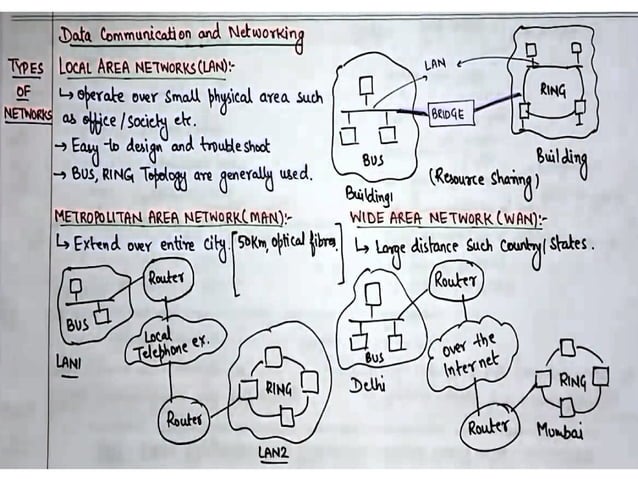 Data Communication and Networking
TYPES
OF
NETWORKS
LOCAL AREA NETWORKS(LAN):-
↳ operate over small physical area such
as office/society etc.
→ Easy to design and troubleshoot
→ BUS, RING Topology are generally used.
LAN
BUS
Building1
BRIDGE
RING
Building
(Resource Sharing)
METROPOLITAN AREA NETWORK(MAN):-
↳ Extend over entire city. [50Km, optical fibres.]
BUS
LAN1
Router
Local
Telephone ex.
Router
RING
LAN2
WIDE AREA NETWORK (WAN):-
↳ Large distance such Country/States.
BUS
Delhi
Router
over the
Internet
Router
RING
Mumbai